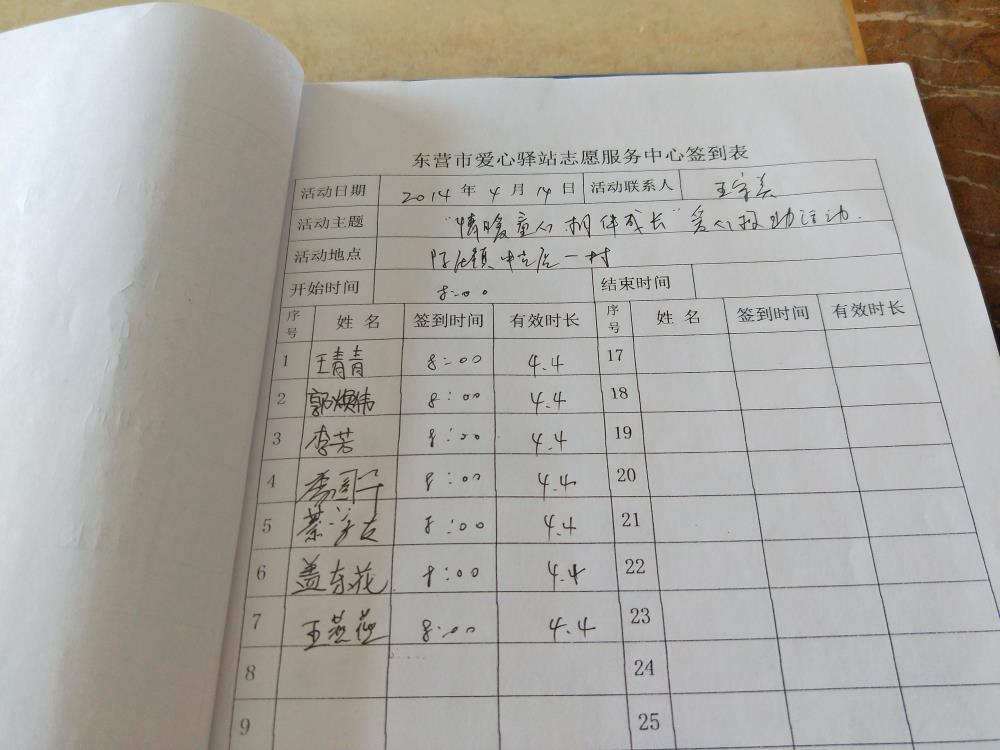 东营市爱心驿站志愿服务中心签到表
活动日期 2014 年 4 月 14 日 活动联系人
活动主题 "情暖童心 相伴成长" 爱心救助活动.
活动地点 一村
开始时间 8:00 结束时间
序号 姓名 签到时间 有效时长 序号 姓名 签到时间 有效时长
1 王青青 8:00 4.4 17
2 郭焕伟 8:00 4.4 18
3 李芳 8:00 4.4 19
4 8:00 4.4 20
5 8:00 4.4 21
6 盖东花 8:00 4.4 22
7 王燕燕 8:00 4.4 23
8 24
9 25